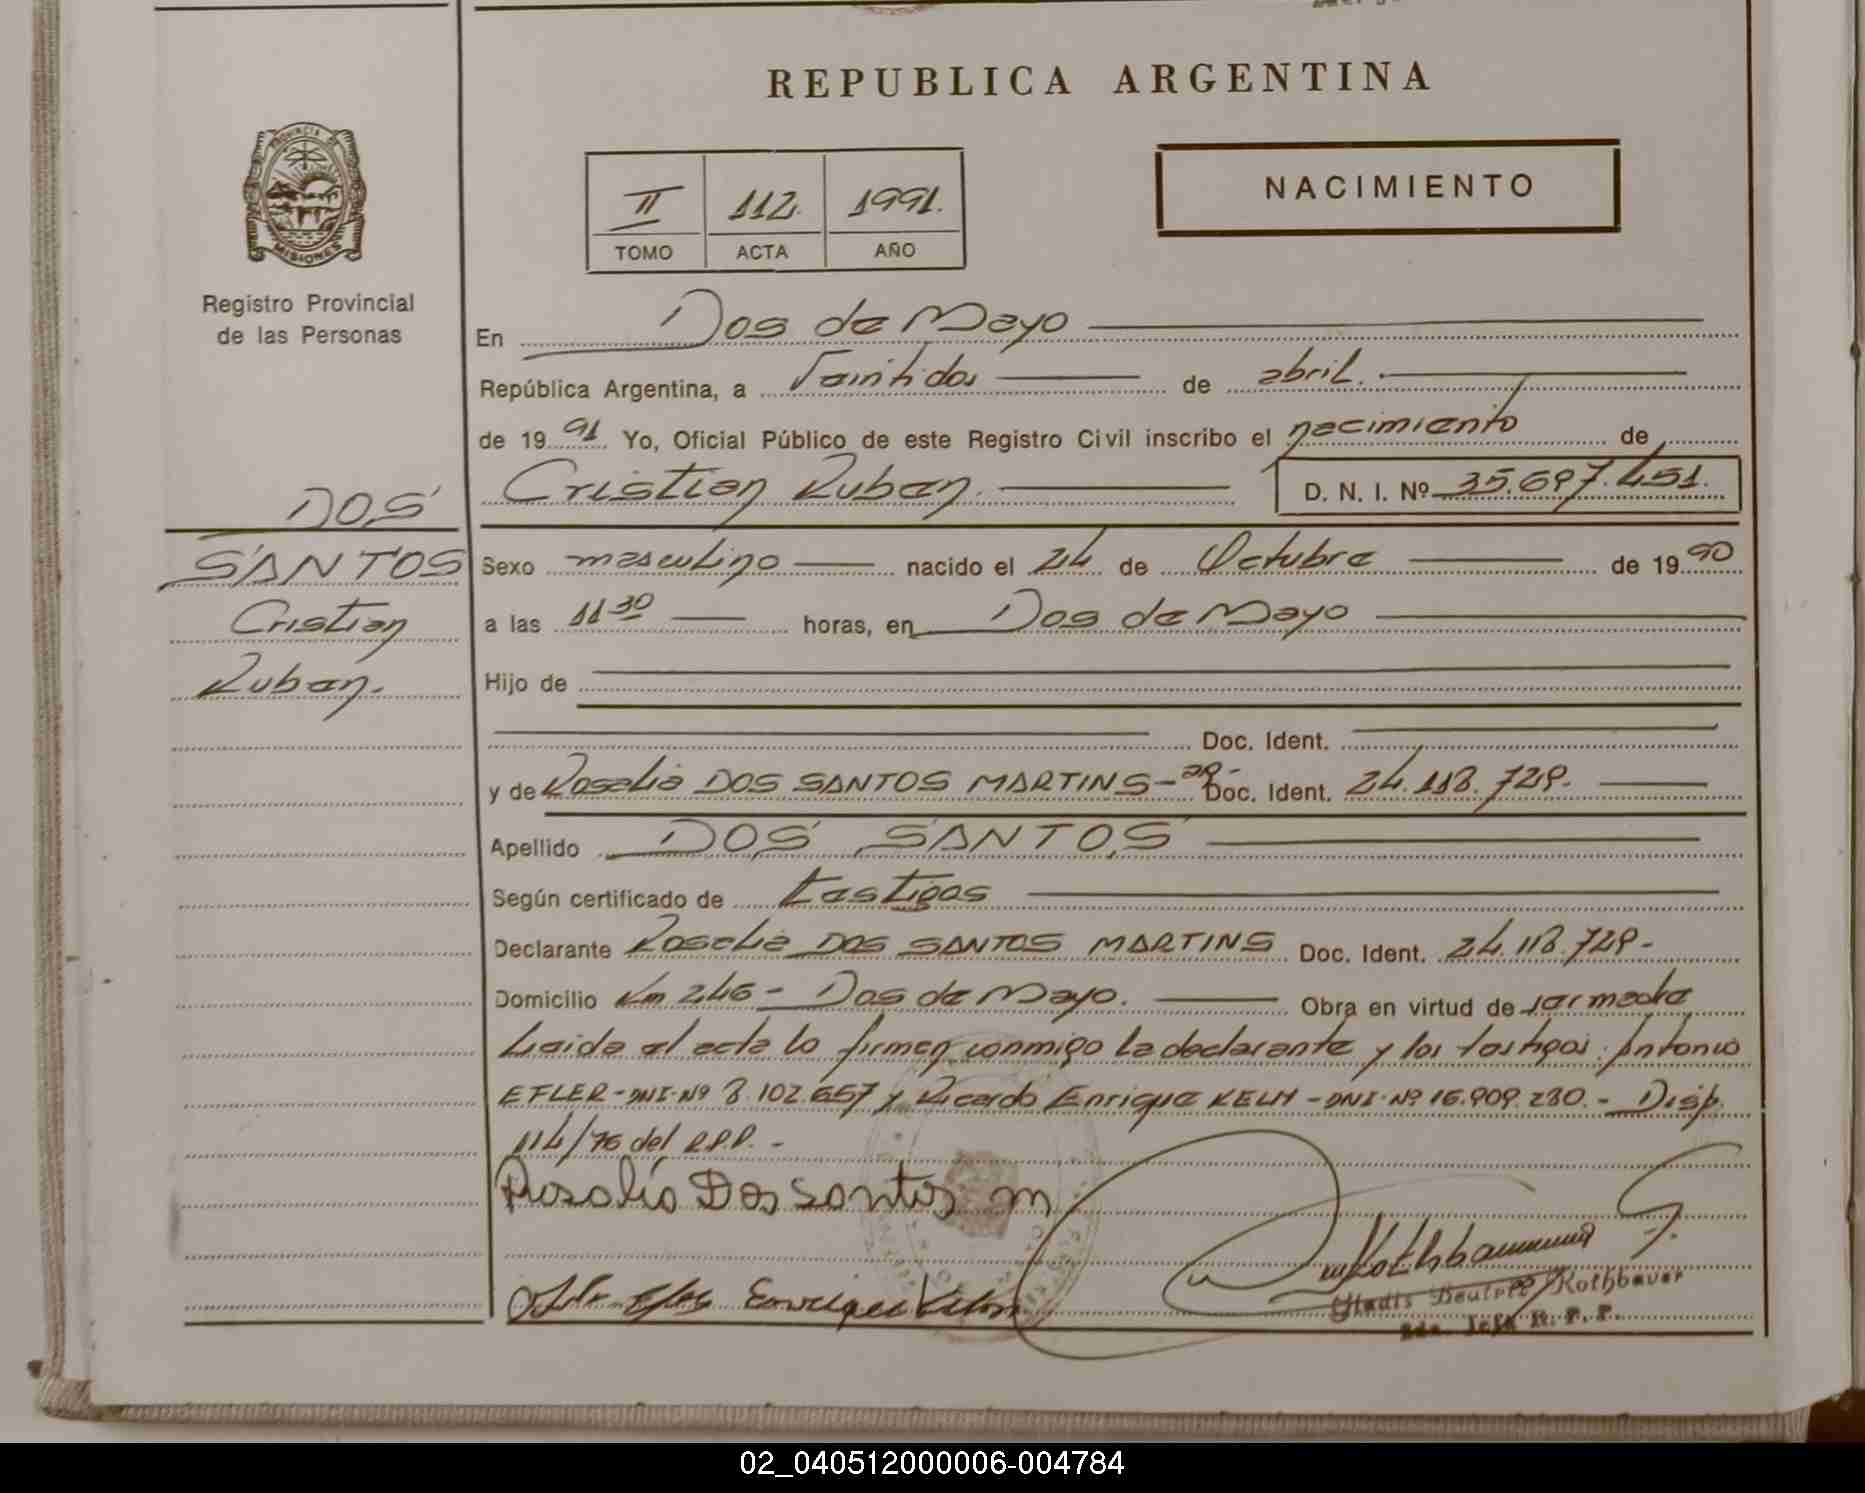 REPUBLICA ARGENTINA
PROVINCIA DE
MISIONES
Registro Provincial
de las Personas
II 112. 1991.
TOMO ACTA AÑO
NACIMIENTO
En Dos de Mayo
República Argentina, a Veintidos de abril.
de 1991 Yo, Oficial Público de este Registro Civil inscribo el nacimiento de
Cristian Ruben. D. N. I. Nº 35.697.451.
DOS
SANTOS
Cristian
Ruben.
Sexo masculino nacido el 24 de Octubre de 1990
a las 11 30 horas, en Dos de Mayo
Hijo de
Doc. Ident.
y de Rosalia DOS SANTOS MARTINS - ar.- Doc. Ident. 24.118.729.
Apellido DOS SANTOS
Según certificado de testigos
Declarante Rosalia DOS SANTOS MARTINS Doc. Ident. 24.118.729-
Domicilio Km 246 - Dos de Mayo. Obra en virtud de ser madre
Leida el acta lo firman conmigo la declarante y los testigos: Antonio
EFLER - DNI. Nº 8.102.657 y Ricardo Enrique KELM - DNI. Nº 16.909.280. - Disp.
114/76 del R.P.P. -
Rosalia Dos Santos m
Enrique Kelm
Rothbauer G.
Gladis Beatriz Rothbauer
Jefe R. P. P.
02_040512000006-004784